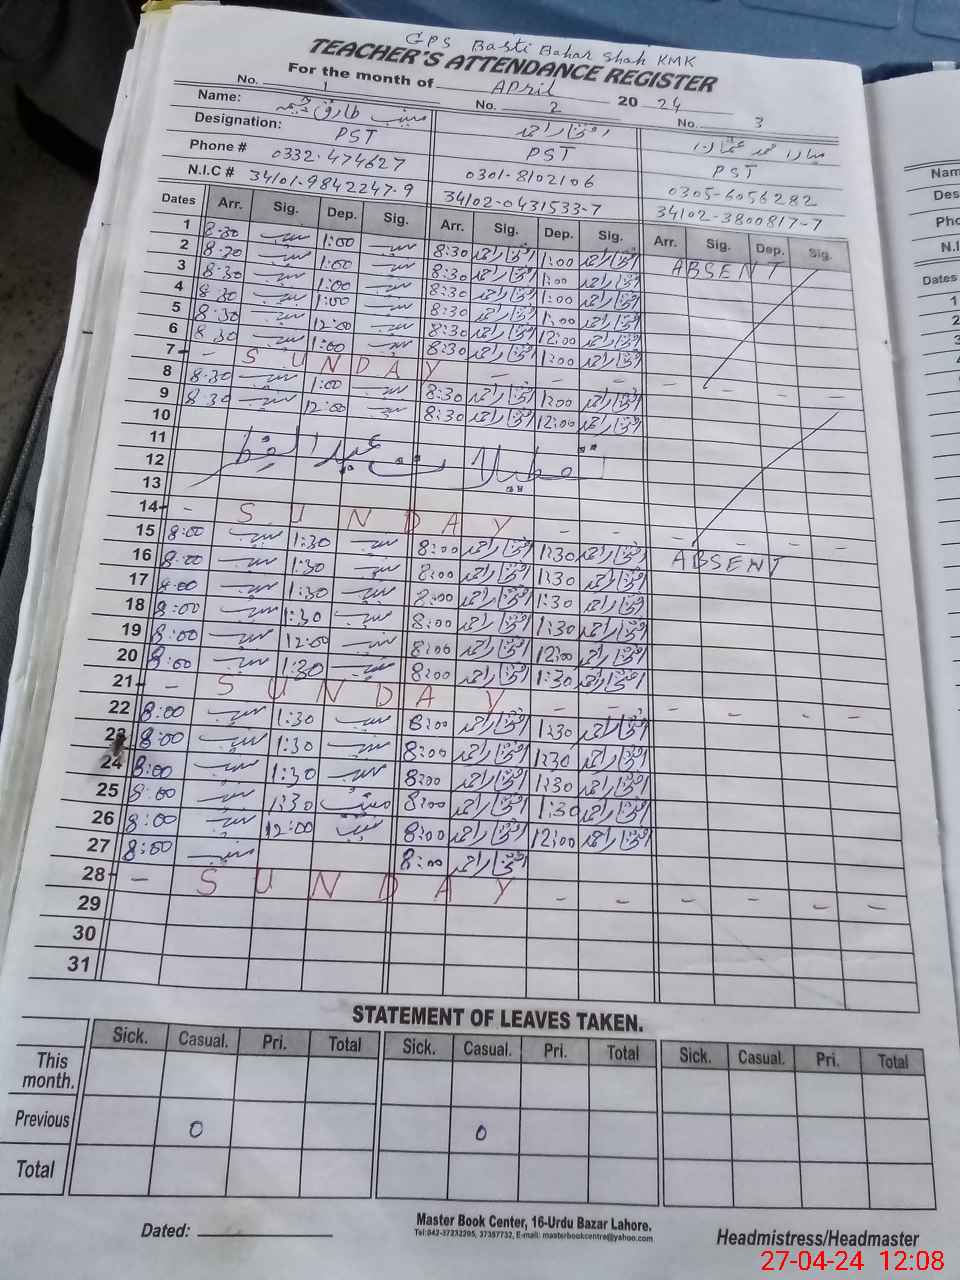 GPS Basti Bahar Shah KMK
TEACHER'S ATTENDANCE REGISTER
For the month of April 2024
No. 1 No. 2 No. 3
Name: منیب طارق افتخار احمد
Designation: PST PST PST
Phone # 0332-474627 0301-8102106 0305-6056282
N.I.C # 34101-9842247-9 34102-0431533-7 34102-3800817-7
Dates Arr. Sig. Dep. Sig. Arr. Sig. Dep. Sig. Arr. Sig. Dep. Sig.
1 8:30 منیب 1:00 منیب 8:30 افتخار احمد 1:00 افتخار احمد ABSENT
2 8:30 منیب 1:00 منیب 8:30 افتخار احمد 1:00 افتخار احمد
3 8:30 منیب 1:00 منیب 8:30 افتخار احمد 1:00 افتخار احمد
4 8:30 منیب 1:00 منیب 8:30 افتخار احمد 1:00 افتخار احمد
5 8:30 منیب 12:00 منیب 8:30 افتخار احمد 12:00 افتخار احمد
6 8:30 منیب 1:00 منیب 8:30 افتخار احمد 1:00 افتخار احمد
7 - SUNDAY - - - - - - -
8 8:30 منیب 1:00 منیب 8:30 افتخار احمد 1:00 افتخار احمد
9 8:30 منیب 12:00 منیب 8:30 افتخار احمد 12:00 افتخار احمد
10
11
12 تعطیلات عید الفطر
13
14 - SUNDAY - - - - - - -
15 8:00 منیب 1:30 منیب 8:00 افتخار احمد 1:30 افتخار احمد ABSENT
16 8:00 منیب 1:30 منیب 8:00 افتخار احمد 1:30 افتخار احمد
17 8:00 منیب 1:30 منیب 8:00 افتخار احمد 1:30 افتخار احمد
18 8:00 منیب 1:30 منیب 8:00 افتخار احمد 1:30 افتخار احمد
19 8:00 منیب 12:00 منیب 8:00 افتخار احمد 12:00 افتخار احمد
20 8:00 منیب 1:30 منیب 8:00 افتخار احمد 1:30 افتخار احمد
21 - SUNDAY - - - - - - -
22 8:00 منیب 1:30 منیب 8:00 افتخار احمد 1:30 افتخار احمد
23 8:00 منیب 1:30 منیب 8:00 افتخار احمد 1:30 افتخار احمد
24 8:00 منیب 1:30 منیب 8:00 افتخار احمد 1:30 افتخار احمد
25 8:00 منیب 1:30 منیب 8:00 افتخار احمد 1:30 افتخار احمد
26 8:00 منیب 12:00 منیب 8:00 افتخار احمد 12:00 افتخار احمد
27 8:00 منیب 8:00 افتخار احمد
28 - SUNDAY - - - - - -
29
30
31
STATEMENT OF LEAVES TAKEN.
Sick. Casual. Pri. Total Sick. Casual. Pri. Total Sick. Casual. Pri. Total
This month.
Previous 0 0
Total
Dated:
Master Book Center, 16-Urdu Bazar Lahore.
Tel:042-37232295, 37357732, E-mail: masterbookcentre@yahoo.com
Headmistress/Headmaster
27-04-24 12:08